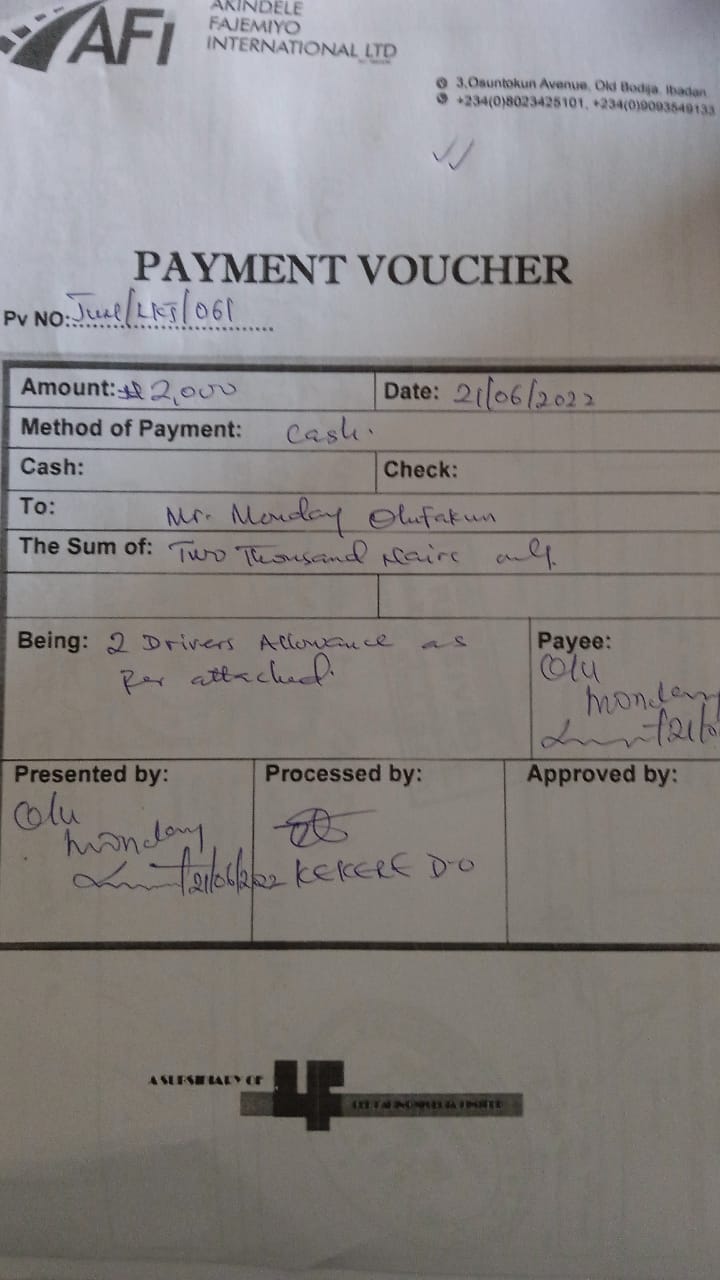 AFI
AKINDELE
FAJEMIYO
INTERNATIONAL LTD
3,Osuntokun Avenue, Old Bodija, Ibadan.
+234(0)8023425101, +234(0)9093549133
PAYMENT VOUCHER
Pv NO: June/LKJ/061
Amount: ₦2,000 Date: 21/06/2022
Method of Payment: Cash.
Cash: Check:
To: Mr. Monday Olufakun
The Sum of: Two Thousand Naira only.
Being: 2 Drivers Allowance as
Per attached.
Payee:
Olu
Monday
21/0
Presented by: Processed by: Approved by:
Olu
Monday
21/06/2022 KEKERE D-O
A SUBSIDIARY OF